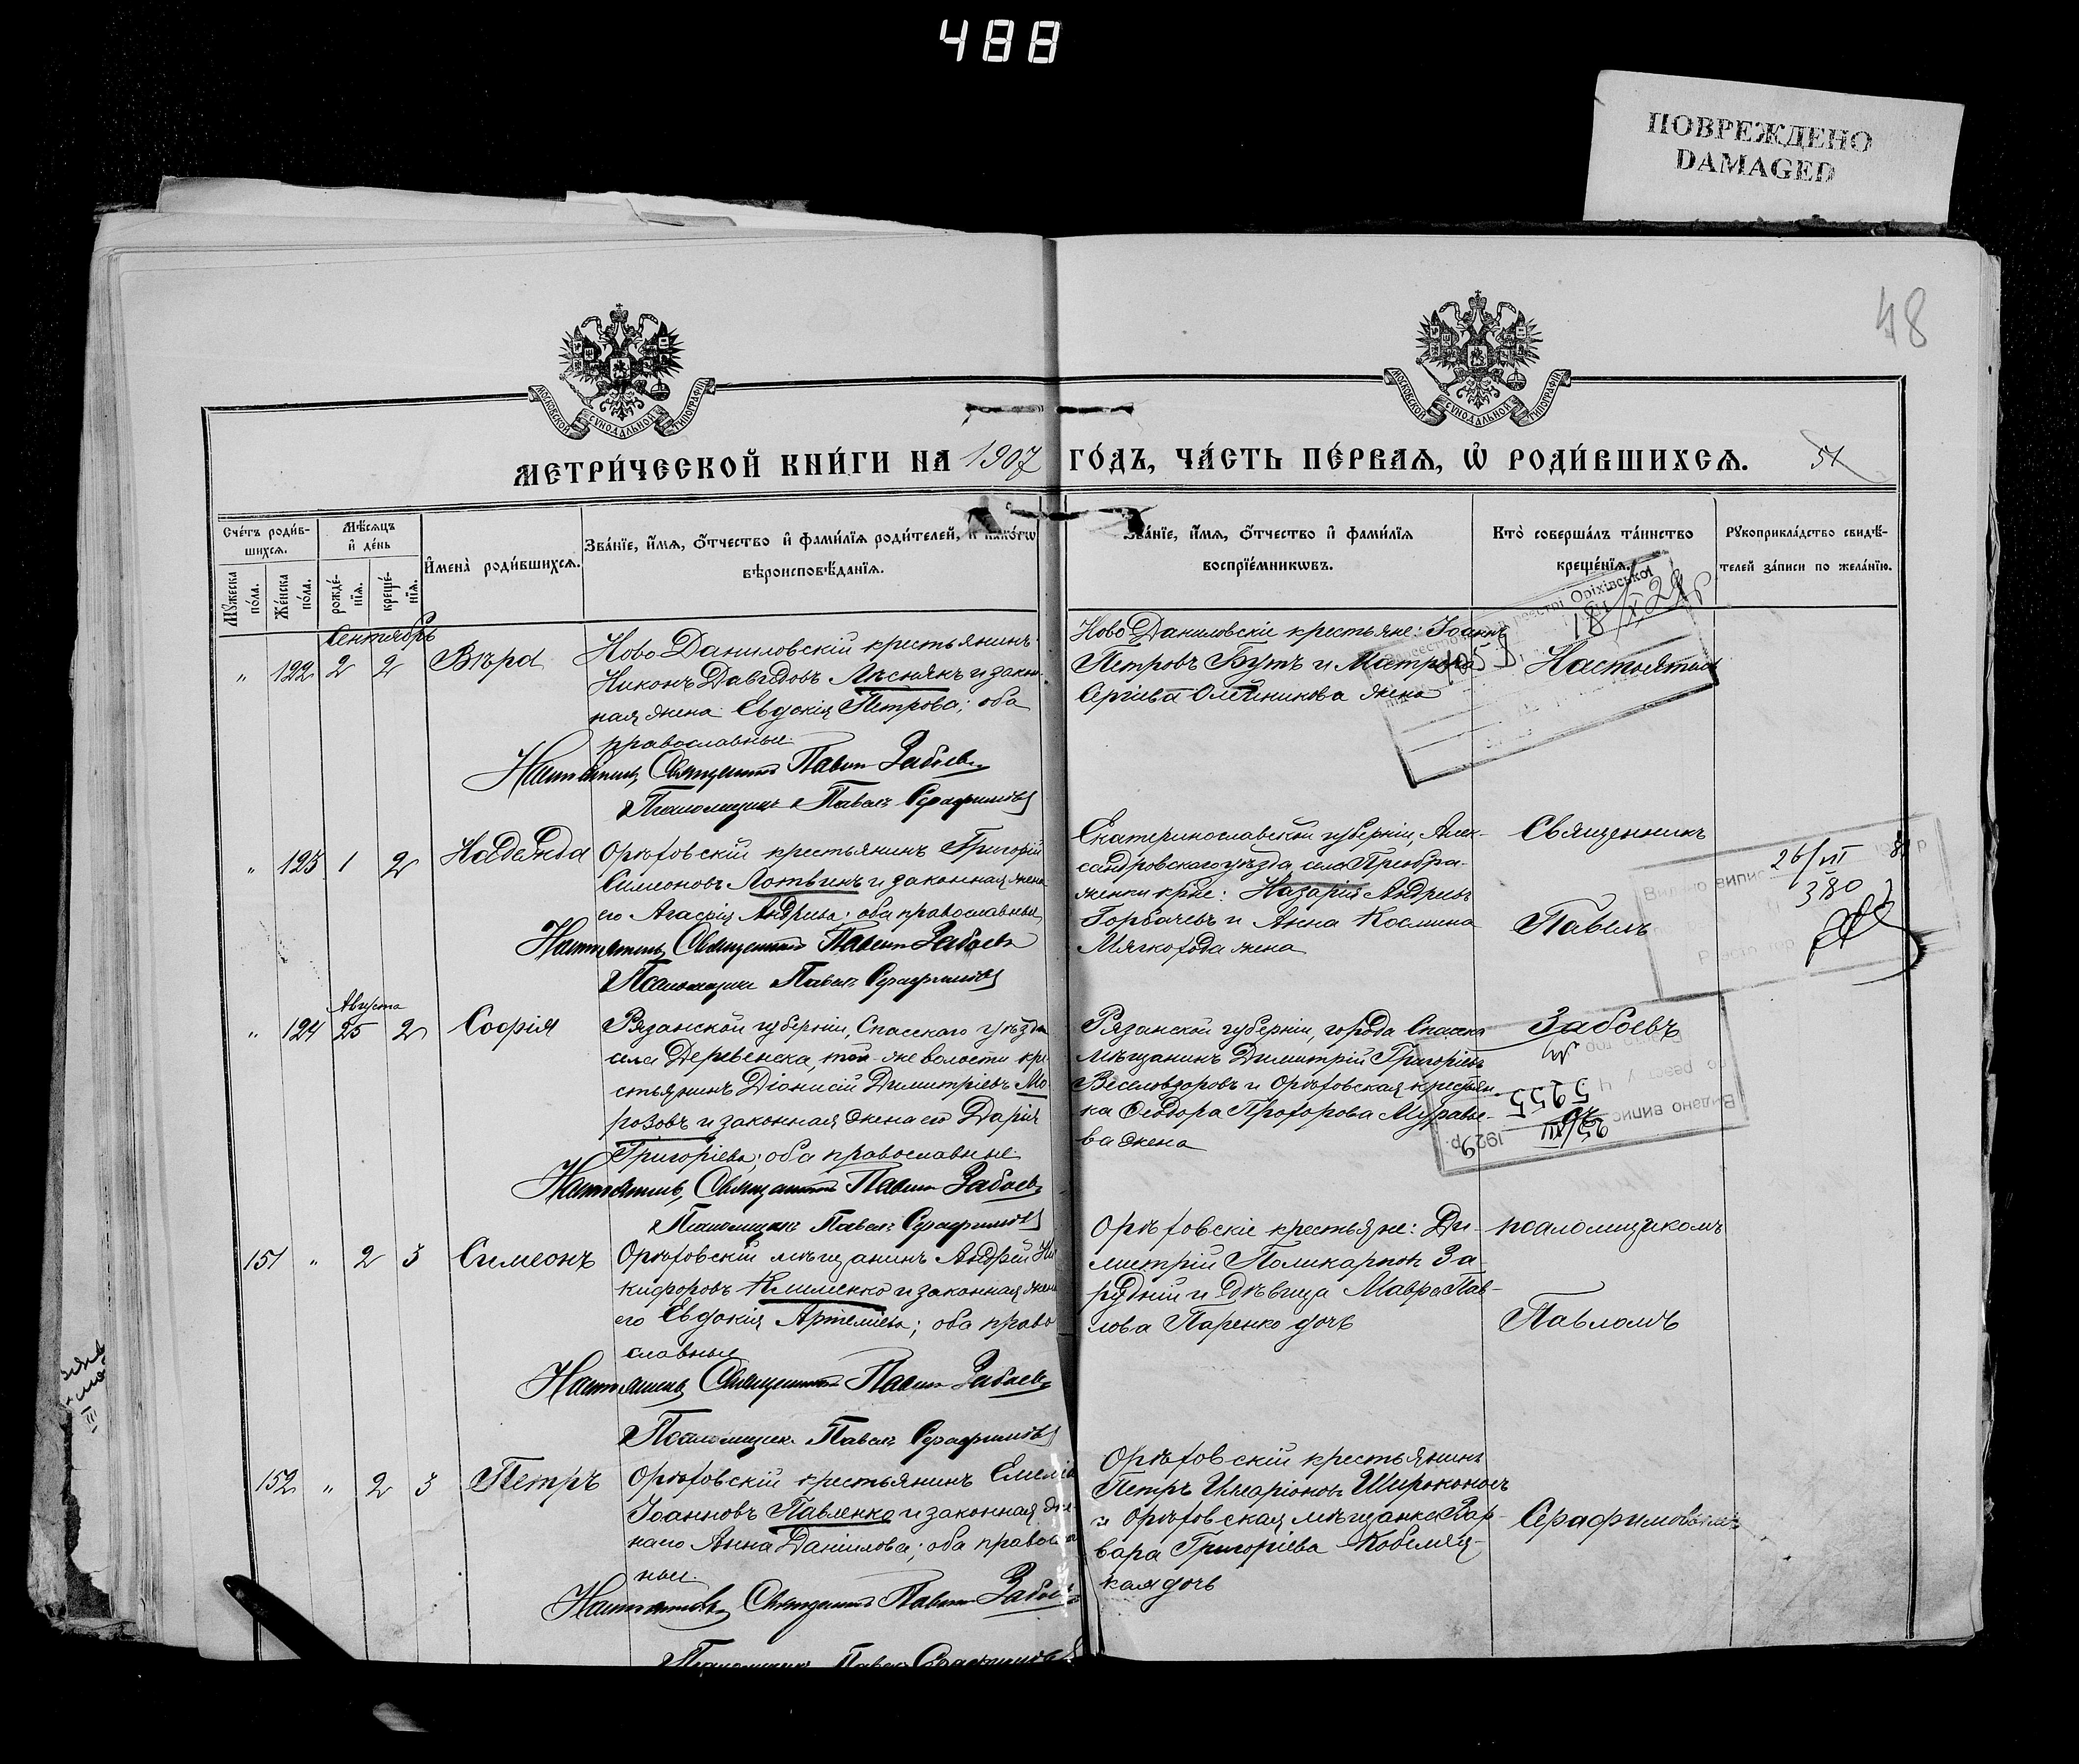 488
ПОВРЕЖДЕНО
DAMAGED
48
МОСКОВСКОЙ СѴНОДАЛЬНОЙ ТИПОГРАФІИ
МОСКОВСКОЙ СѴНОДАЛЬНОЙ ТИПОГРАФІИ
МЕТРИ́ЧЕСКОЙ КНИ́ГИ НА 1907 ГО́ДЪ, ЧА́СТЬ ПЕ́РВАѦ, Ѡ҆ РОДИ́ВШИХСѦ. 51
Сче́тъ роди́в-
шихсѧ.
Мꙋ́жеска по́ла.
Же́нска по́ла.
Мѣ́сѧцъ
и҆ де́нь
рожде́-
нїѧ.
креще́-
нїѧ.
И҆мена̀ роди́вшихсѧ.
Зва́нїе, и҆́мѧ, ѻ҆́тчество и҆ фами́лїѧ роди́телей, и҆ како́гѡ
вѣроисповѣ́данїѧ.
Зва́нїе, и҆́мѧ, ѻ҆́тчество и҆ фами́лїѧ
воспрїе́мникѡвъ.
Кто̀ соверша́лъ та́инство
креще́нїѧ.
Рꙋкоприкла́дство свидѣ́-
телей за́писи по жела́нїю.
Сентябрь
" 122 2 2 Вѣра
Ново Даниловскій крестьянинъ
Никонъ Давидовъ Лѣснякъ и закон-
ная жена Евдокія Петрова; оба
православные.
Настоятель, Священникъ Павелъ Забоевъ
Псаломщикъ Павелъ Серафимовъ
Ново Даниловскіе крестьяне: Іоаннъ
Петровъ Бутъ и Матрона
Сергіева Олейникова жена
Настоятель
" 123 1 2 Надежда
Орѣховскій крестьянинъ Григорій
Симеоновъ Лотвинъ и законная жена
его Агафія Андреева; оба православные
Настоятель, Священникъ Павелъ Забоевъ
Псаломщикъ Павелъ Серафимовъ
Екатеринославской губерніи, Алек-
сандровскаго уѣзда, села Преобра-
женки кр-не: Назарій Андреевъ
Горбачевъ и Анна Космина
Мягкохода жена
Священникъ
Павелъ
26/VII
380
Августа
" 124 25 2 Софія
Рязанской губерніи, Спасскаго уѣзда
села Деревенска, той-же волости кре-
стьянинъ Діонисій Димитріевъ Мо-
розовъ и законная жена его Дарія
Григоріева; оба православные.
Настоятель, Священникъ Павелъ Забоевъ
Псаломщикъ Павелъ Серафимовъ
Рязанской губерніи, города Спасска
мѣщанинъ Димитрій Григоріевъ
Веселовзоровъ и Орѣховская крестьян-
ка Ѳеодора Прохорова Муравье-
ва жена
Забоевъ
Видано випис
5255
25/VII 1929р.
151 " 2 3 Симеонъ
Орѣховскій мѣщанинъ Андрей Ни-
кифоровъ Клименко и законная жена
его Евдокія Артеміева; оба право
славные
Настоятель, Священникъ Павелъ Забоевъ
Псаломщикъ Павелъ Серафимовъ
Орѣховскіе крестьяне: Ди-
митрій Поликарповъ За-
рудній и дѣвица Мавра Пав-
лова Паренко дочь
псаломщикомъ
Павломъ
152 " 2 3 Петръ
Орѣховскій крестьянинъ Емеліа
Іоанновъ Павленко и законная же-
на его Анна Даніилова; оба правосла
ные.
Настоятель, Священникъ Павелъ Забоевъ
Псаломщикъ Павелъ Серафимовъ
Орѣховскій крестьянинъ
Петръ Иларіоновъ Широконосъ
и Орѣховская мѣщанка Вар-
вара Григоріева Кобеляц-
кая дочь
Серафимовымъ